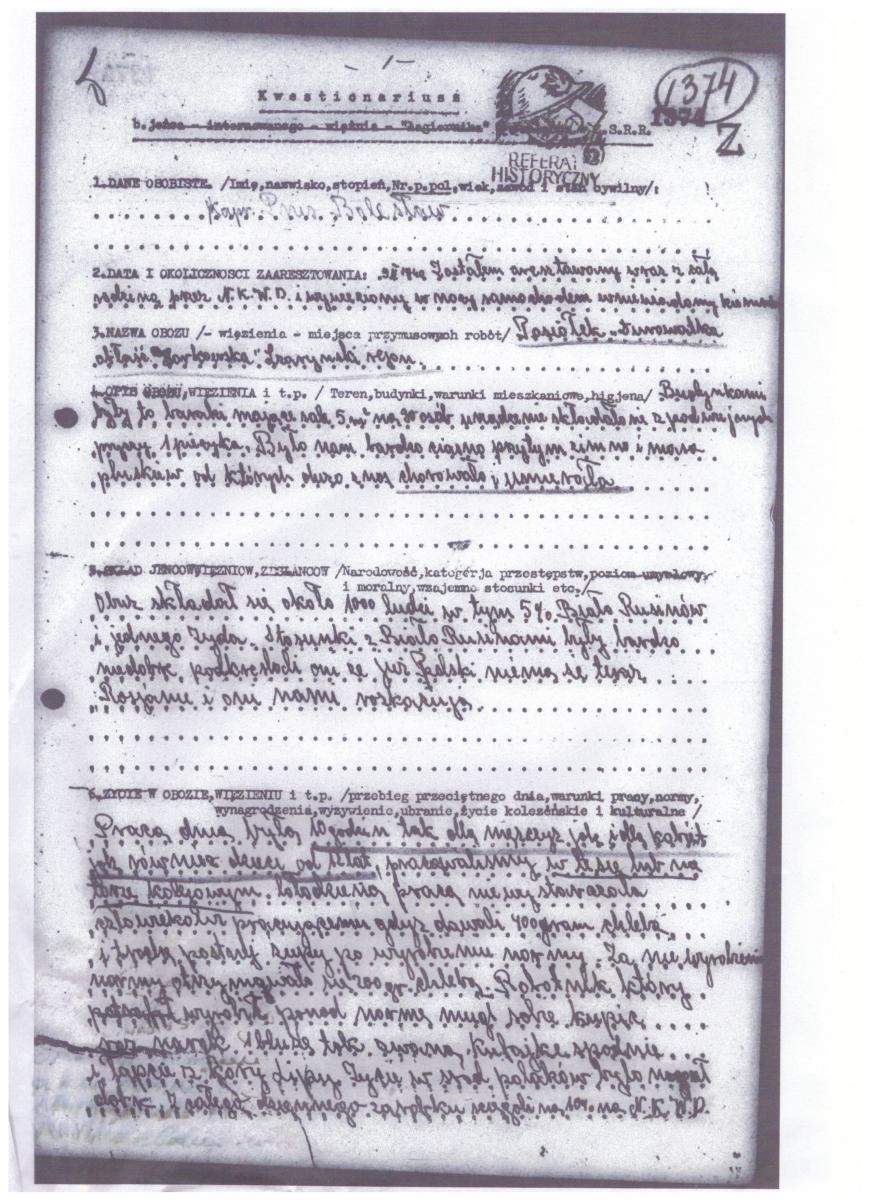 - 1 -
1374
Kwestionariusz
1374
b. jeńca – internowanego – więźnia – "łagiernika" S.R.R.
Z
REFERAT
HISTORYCZNY
1.DANE OSOBISTE. /Imię,nazwisko,stopień,Nr.p.pol,wiek,zawód i stan cywilny/:
Kapr. Prus Bolesław
2.DATA I OKOLICZNOSCI ZAARESZTOWANIA: Zostałem aresztowany wraz z całą
rodziną przez N.K.W.D. i wywieziony w nocy samochodem w niewiadomy
3.NAZWA OBOZU /- więzienia - miejsca przymusowych robót/ Posiołek
rejon
4.OPIS OBOZU,WIĘZIENIA i t.p. / Teren,budynki,warunki mieszkaniowe,higjena/ Budynkami
były to baraki mające 5 m² na osób urządzenie składało się z podwujnych
pryczy 1 piecyka. Było nam bardzo ciasno przytym zimno i masa
pluskiew od których dużo z nas chorowało i umierało
5.SKŁAD JENCOW,WIĘZNIOW,ZESŁANCOW /Narodowość,kategorja przestępstw,poziom umysłowy,
i moralny,wzajemne stosunki etc./
Obuz składał się około 1000 ludzi w tym 5% Biało Rusinów
i jednego Żyda. Stosunki z Biało Rusinami były bardzo
niedobre podkreślali oni że już Polski niema że teraz
Rosjanie i oni nami roskazują
6.ZYCIE W OBOZIE,WIĘZIENIU i t.p. /przebieg przeciętnego dnia,warunki pracy,normy,
wynagrodzenia,wyżywienie,ubranie,życie koleżeńskie i kulturalne /
Praca dnia była 10 godzin tak dla męszczyz jak i dla kobiet
jak rówież dzieci od lat, pracowaliśmy w lesie lub na
torze kolejowym. praca niewystarczała
pracującemu gdyż dawali 400 gram chleba
i zupy po wyrobieniu normy. Za nie wyrobienie
normy otrzymywało się 200 gr. chleba. który
wyrobić ponad normę mugł sobie kupić
raz na rok 1 bluzę tak zwaną kufajkę spodnie
i łapcie z kory lipy Życie w śród polaków było
dobre. Z całego zarobku na 10% na N.K.W.D.